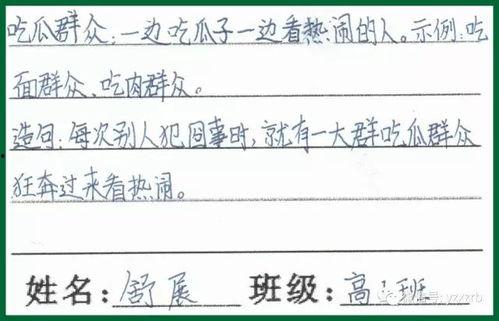 吃瓜群众：一边吃瓜子一边看热闹的人。示例：吃
面群众、吃肉群众。
造句：每次别人犯囧事时，就有一大群吃瓜群众
狂奔过来看热闹。
姓名：舒展 班级：高1班
yzxzrb